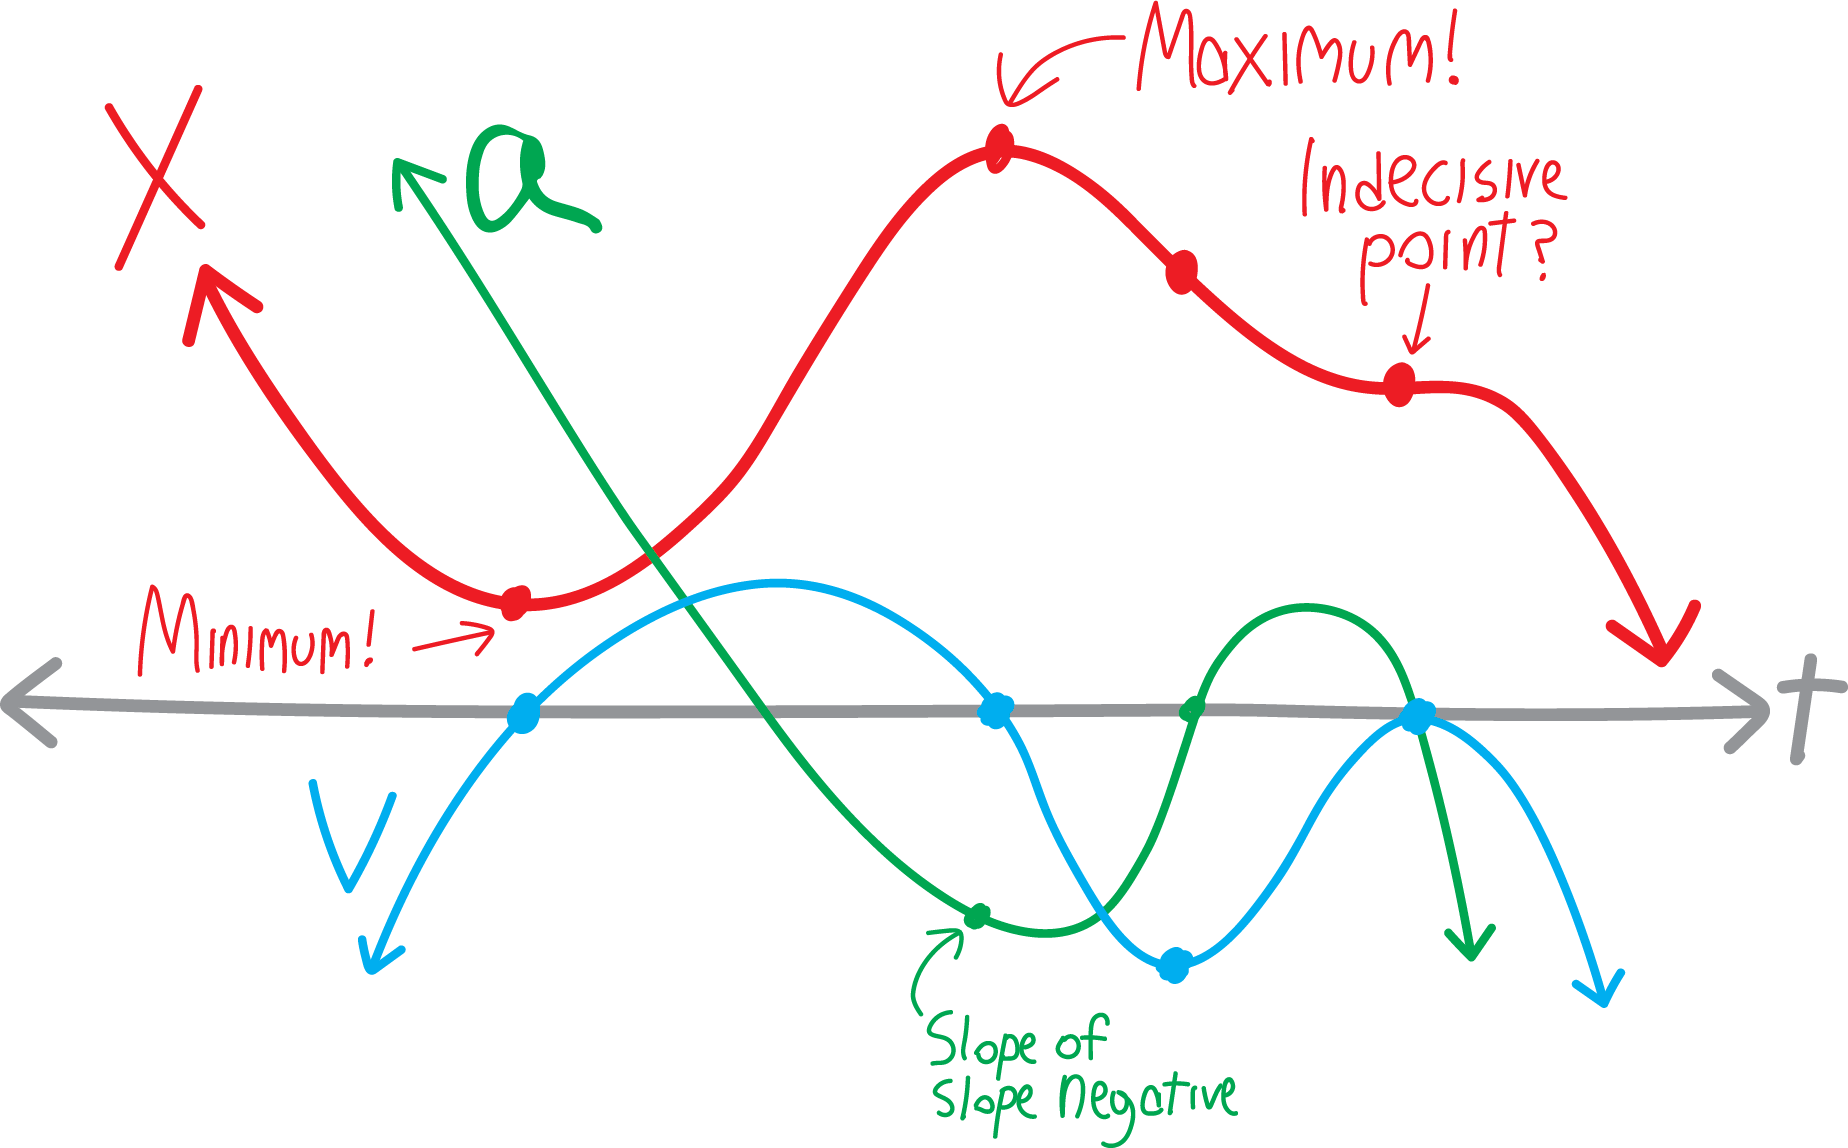 Maximum!
X
a
Indecisive
point?
Minimum!
t
V
Slope of
slope negative